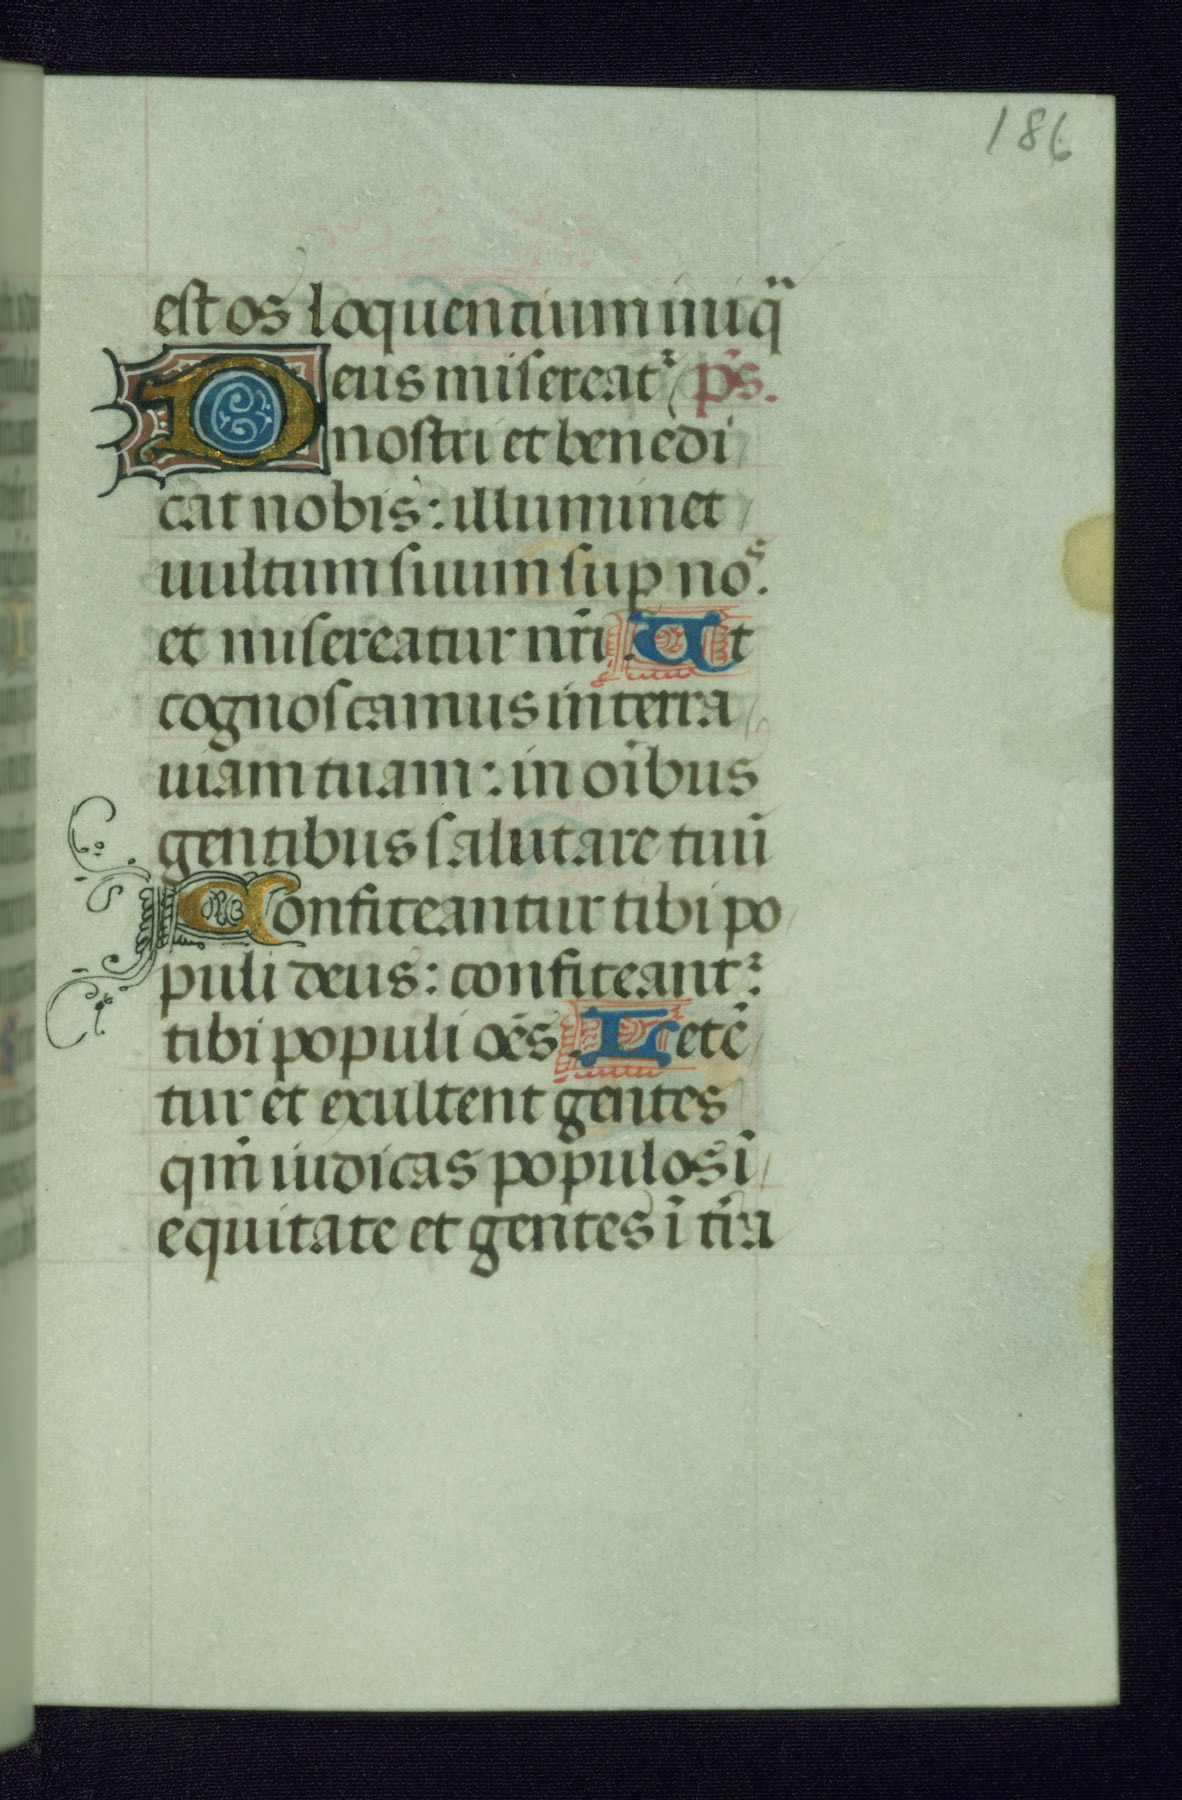 186
est os loquentium iniq̈
Deus misereatᷣ p̄s.
nostri et benedi
cat nobis: illuminet
uultum suum suꝑ nos.
et misereatur nr̄i. Ut
cognoscamus in terra
uiam tuam: in oībus
gentibus salutare tuū
Confiteantur tibi po
puli deus: confiteantᷣ
tibi populi oēs. Letē
tur et exultent gentes
qm̄ iudicas populos ī
equitate et gentes ī tr̄a